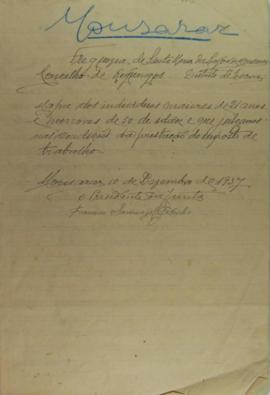 Mousaraz
Freguezia, de Santa Maria da Lagôa de Monsaraz
Concelho de Reguengos Distrito de Evora
Mapa dos individuos maiores de 21 anos
e menores de 50 de idade, e que julgamos
nas condições da prestação do imposto de
trabalho.
Monsaraz 10 de Dezembro de 1937
O Presidente da Junta
Francisco